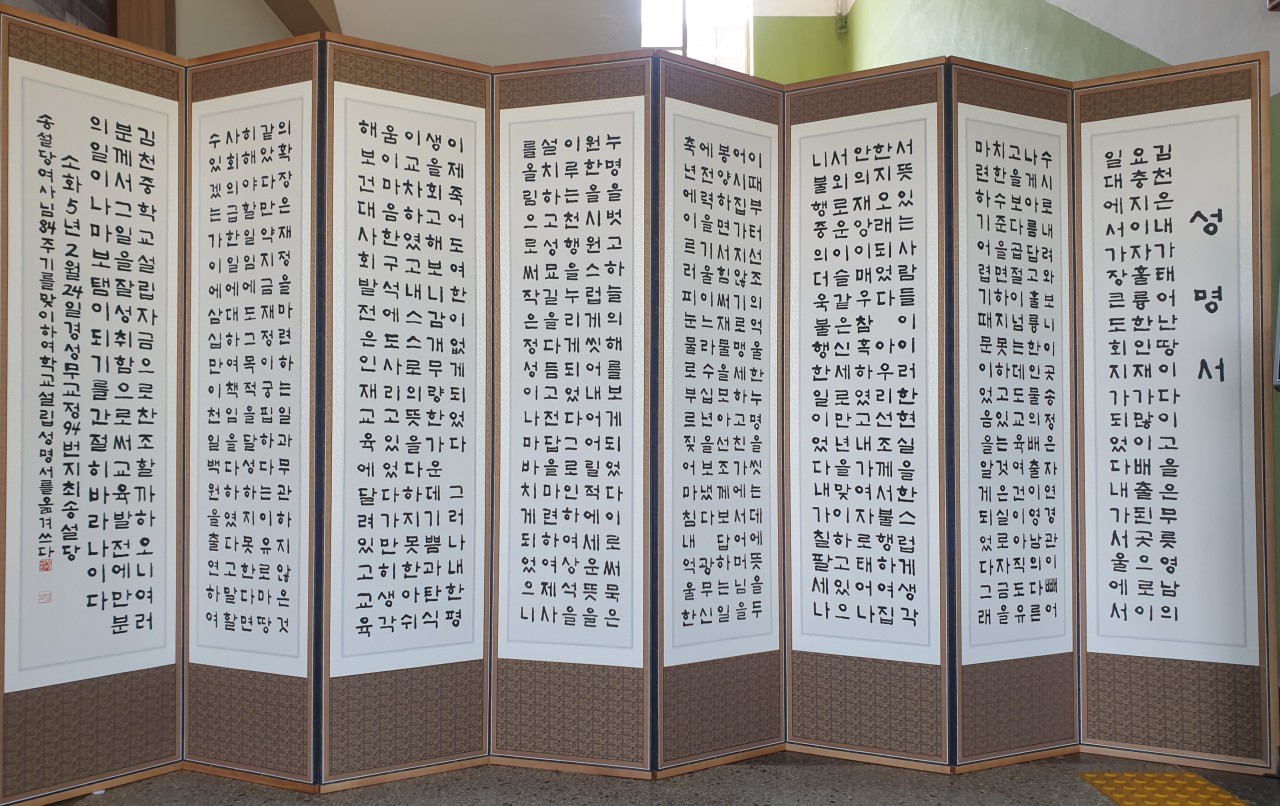 성명서
김천은내가태어난땅이다이고을은무릇영남의
요충지이자훌륭한인재가많이배출된곳으로이
일대에서가장큰도회지가되었다내가서울에서
수시로내려와보니이곳송정은자연경관이빼어
나게아름답고훌륭한인물의배출이영남의다른
고을보다급절이넘는데도교육여건이아직도유
치한수준을면하지못하고있는것은실로자금을
마련하기어렵기때문이었음을알게되었다그래
서뜻있는사람들이이러한현실을한스럽게생각
한지오래되었다 아우리선조께서불행하여집
안의재앙이매우참혹하였고내가여자로태어나
서외로운이슬같은신세로만년을맞이하고있으
니불행중의더욱불행한일이었다내가칠팔세나
이때부터선조의억울한누명을씻는데에뜻을두
어시집가지않기로맹세하고친가에서어머님을
봉양하면서힘써재물을모아선조께보답하는일
에전력을기울이느라수십년을보냈다 광무신
축년에이르러피눈물로부르짖어마침내억울한
누명을벗고하늘의해를보게되었다이로써묵은
원한을시원스럽게씻어내어어릴적에세운뜻을
이루는천행을누리게되었다그로인하여상석을
설치하고성묘길을다듬고전답을마련하여제사
를올림으로써작은정성이나마바치게되었으니
이제죽어도여한이없게되었다 그러나내한평
생을회고해보니감개무량한가운데기쁨과탄식
이교차하였고내스스로의뜻을다하지못한아쉬
움이마음한구석에또사리고있었다가만히생각
해보건대사회발전은인재교육에달려있고교육
의확장은재정을마련하는일과무관하지않은것
같았다만약지금재정이궁핍하다는이유로마땅
히해야할일임에도그목적을달성하지못한다면
사회의급한일에대하여책임을다하였다고말할
수있겠는가이에삼십만이천일백원을출연하여
김천중학교설립자금으로찬조할까하오니여러
분께서그일을잘성취함으로써교육발전에만분
의일이나마보탬이되기를간절히바라나이다
소화5년2월24일경성무교정94번지최송설당
송설당여사님84주기를맞이하여학교설립성명서를옮겨쓰다